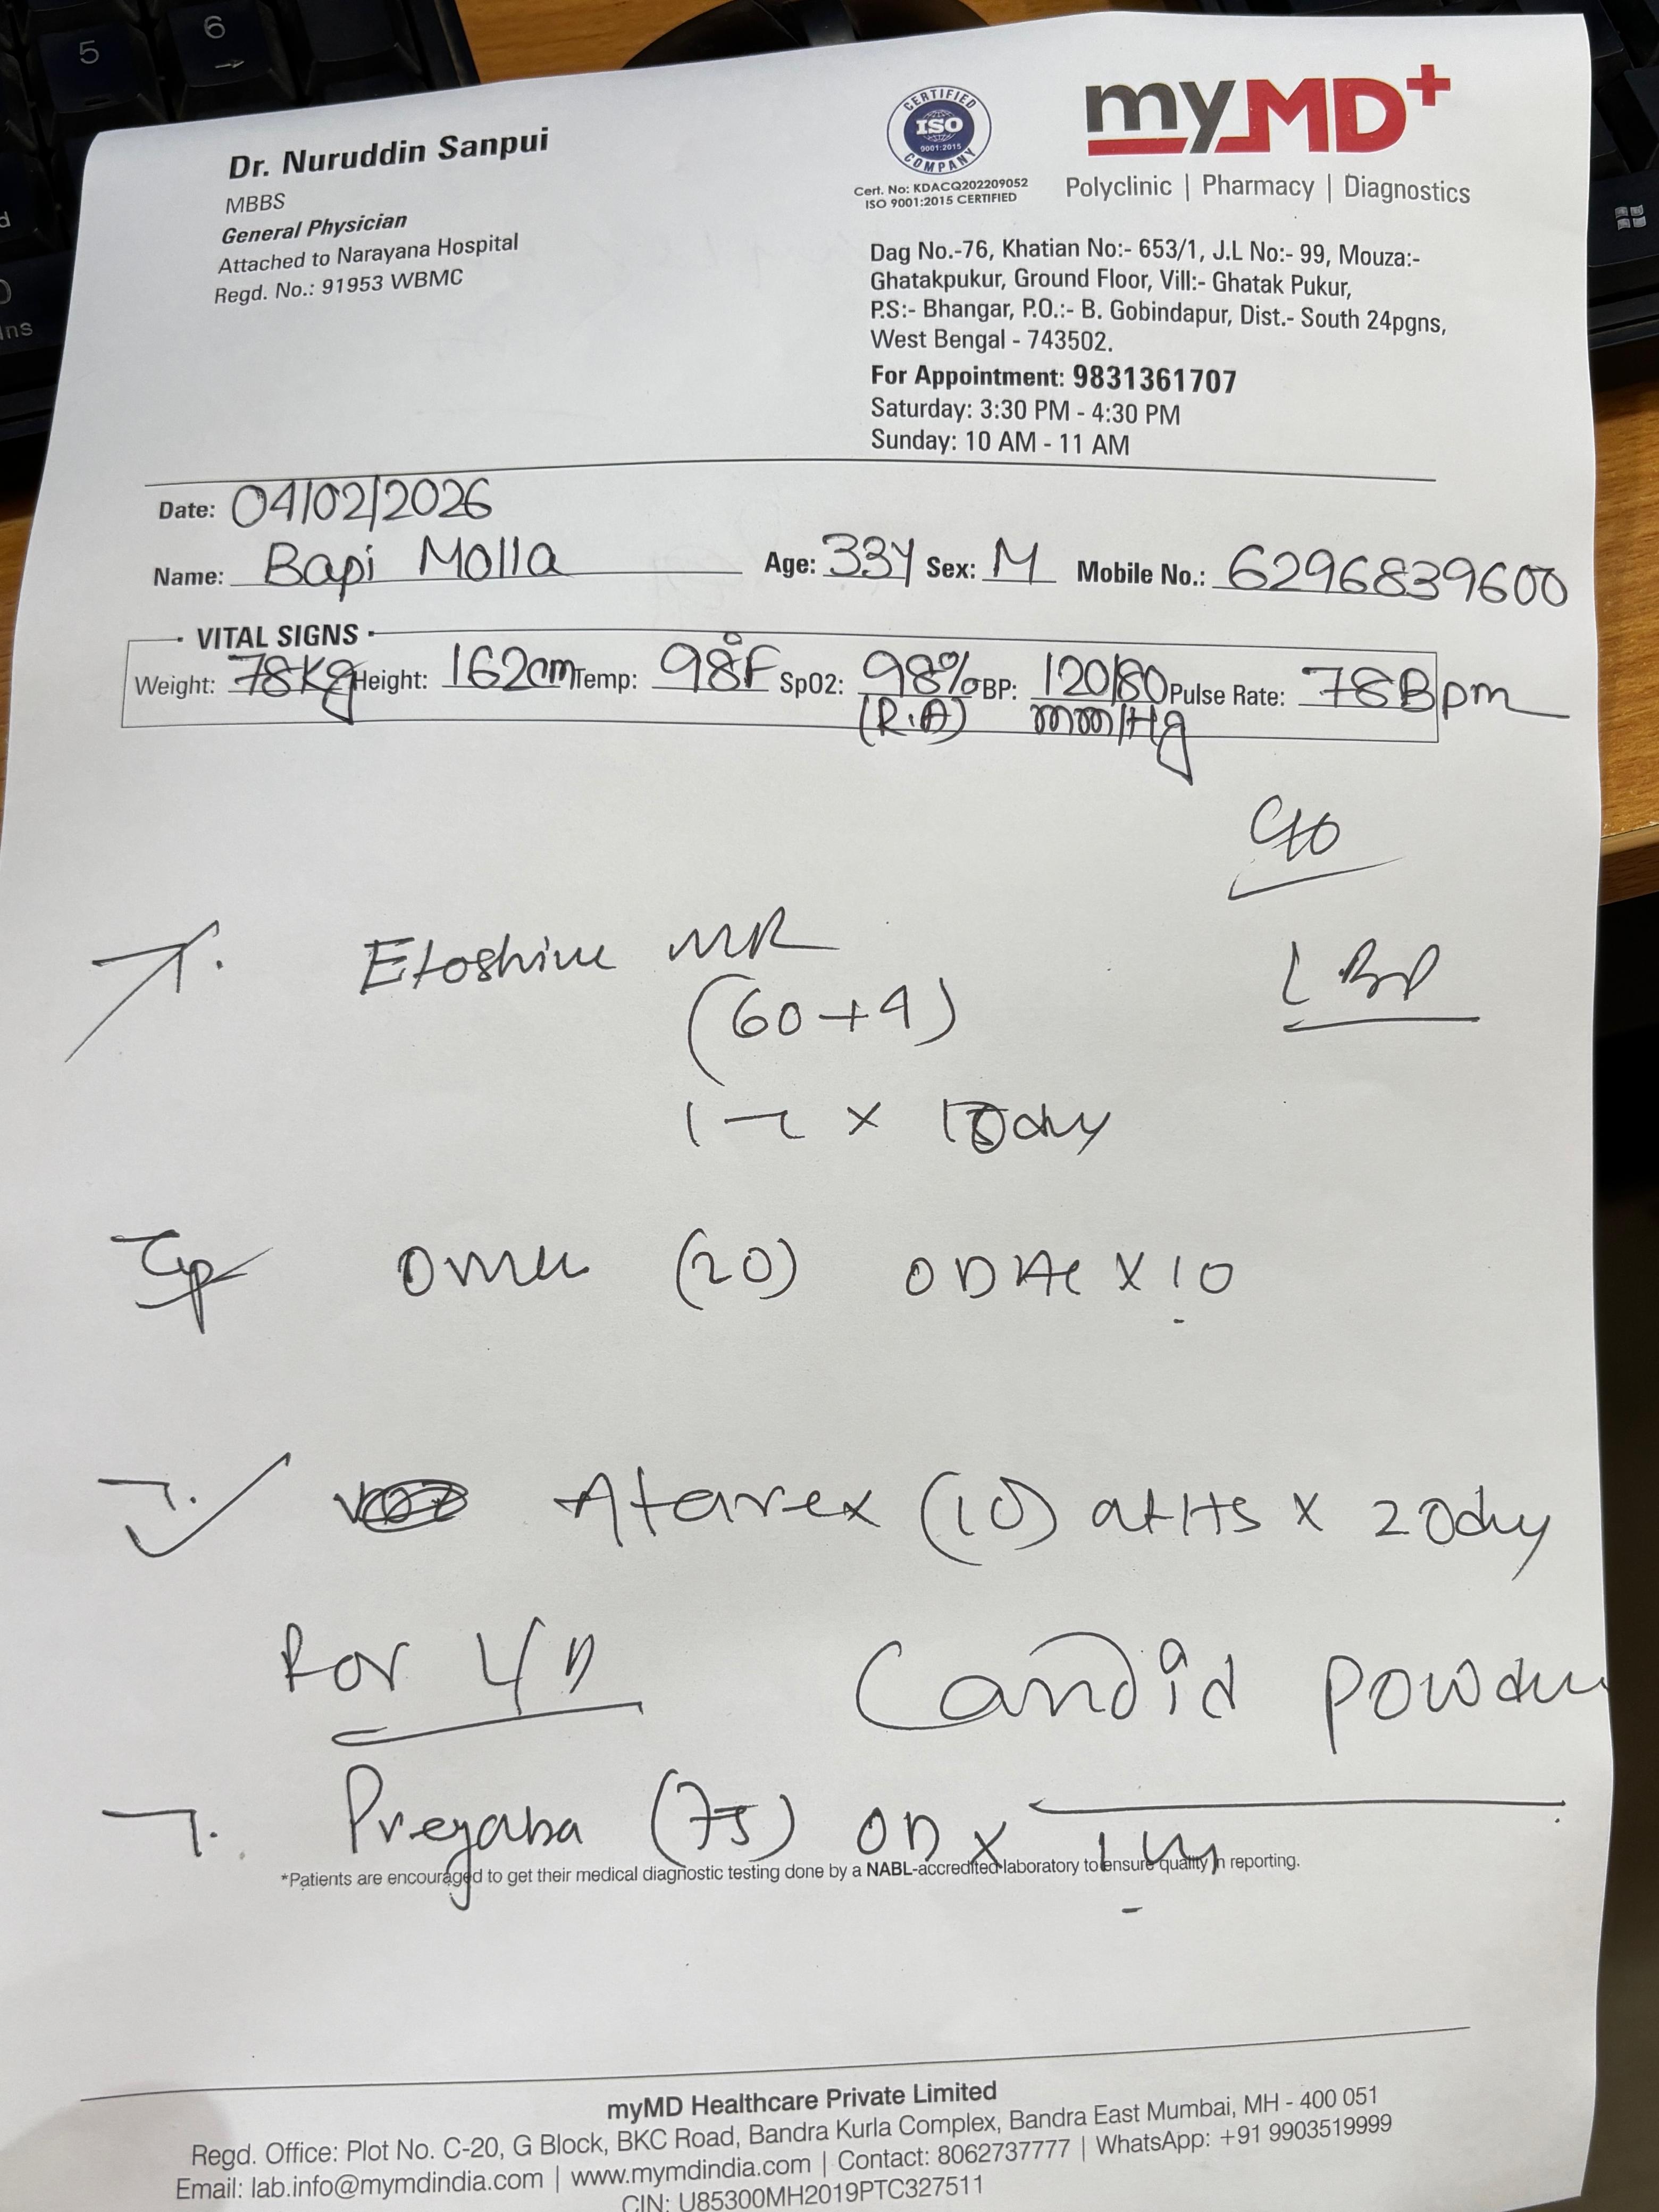 5
6
Dr. Nuruddin Sanpui
MBBS
General Physician
Attached to Narayana Hospital
Regd. No.: 91953 WBMC
CERTIFIED
ISO
9001:2015
COMPANY
Cert. No: KDACQ202209052
ISO 9001:2015 CERTIFIED
myMD+
Polyclinic | Pharmacy | Diagnostics
Dag No.-76, Khatian No:- 653/1, J.L No:- 99, Mouza:-
Ghatakpukur, Ground Floor, Vill:- Ghatak Pukur,
P.S:- Bhangar, P.O.:- B. Gobindapur, Dist.- South 24pgns,
West Bengal - 743502.
For Appointment: 9831361707
Saturday: 3:30 PM - 4:30 PM
Sunday: 10 AM - 11 AM
Date: 04/02/2026
Name: Bapi Molla Age: 33Y Sex: M Mobile No.: 6296839600
VITAL SIGNS
Weight: 78Kg Height: 162cm Temp: 98°F SpO2: 98% BP: 120/80 Pulse Rate: 78Bpm
(R.A) mm/Hg
C/O
LBP
T. Etoshine MR
(60+4)
Cap (20) OD AC X 10
T. Atarax (10) at HS x 20dy
Candid powder
T. Pregaba (75) OD x 1
*Patients are encouraged to get their medical diagnostic testing done by a NABL-accredited laboratory to ensure quality in reporting.
myMD Healthcare Private Limited
Regd. Office: Plot No. C-20, G Block, BKC Road, Bandra Kurla Complex, Bandra East Mumbai, MH - 400 051
Email: lab.info@mymdindia.com | www.mymdindia.com | Contact: 8062737777 | WhatsApp: +91 9903519999
CIN: U85300MH2019PTC327511